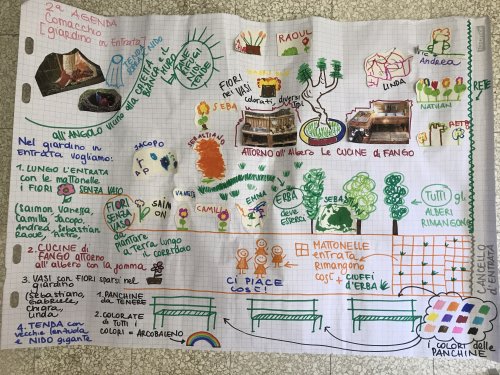 2ª AGENDA
Comacchio
[giardino in Entrata]
RAOUL
Andrea
LINDA
NATHAN
RETE
FIORI
nei VASI
colorati, diversi
SEBA
all'ANGOLO vicino alla
SEBASTIANO
JACOPO
ATTORNO all'Albero le CUCINE di FANGO
Nel giardino in
ENTRATA vogliamo:
1. LUNGO L'ENTRATA
con le mattonelle
i FIORI SENZA VASO
(Saimon, Vanessa,
Camilla, Jacopo,
Andrea, Sebastian
Raoul,
2. CUCINE di
FANGO attorno
all'albero con la gomma
3. VASI con FIORI sparsi nel
giardino
(Sebastiano,
Gabriele,
Chiara,
Linda)
4. TENDA con
vecchie lenzuola
e NIDO gigante
VANESSA
FIORI
SENZA
VASO da
piantare
a Terra lungo
il corridoio
SAIMON
CAMILLA
EMMA
ERBA
deve
esserci
SEBASTIAN
TUTTI gli
ALBERI
RIMANGONO
CI PIACE
COSÌ!
MATTONELLE
entrata
Rimangono
così + CIUFFI
d'ERBA
CANCELLO
di ENTRATA
1. PANCHINE
da TENERE
2. COLORATE
di TUTTI i
COLORI = ARCOBALENO
i COLORI delle
PANCHINE